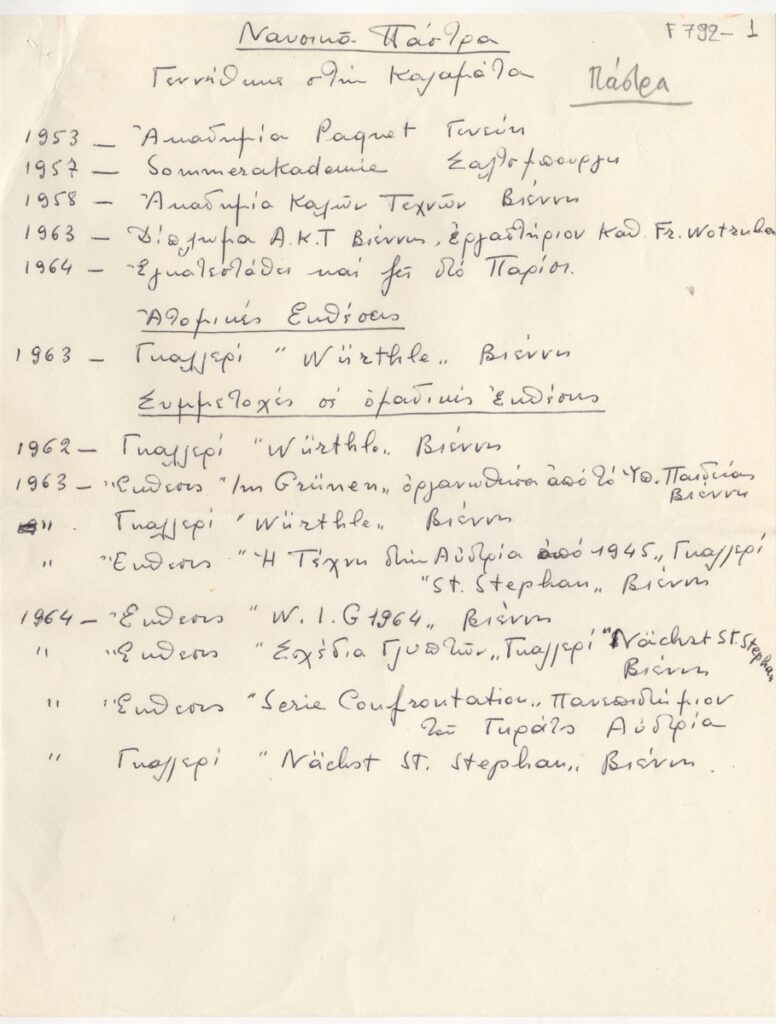 F 792-1
Ναυσικᾶ Πάστρα
Γεννήθηκε στὴν Καλαμάτα
Πάστρα
1953 – Ἀκαδημία Paquet Γενεύη
1957 – Sommerakademie Σαλτσμπουργκ
1958 – Ἀκαδημία Καλῶν Τεχνῶν Βιέννης
1963 – Δίπλωμα Α.Κ.Τ Βιέννης, ἐργαστήριον Καθ. Fr. Wotruba
1964 – Ἐγκατεστάθει καί ζεῖ στό Παρίσι.
Ἀτομικές Ἐκθέσεις
1963 – Γκαλλερί "Würthle" Βιέννη
Συμμετοχές σέ ὁμαδικές Ἐκθέσεις
1962 – Γκαλλερί "Würthle" Βιέννη
1963 – Ἔκθεσις "Im Grünen" ὀργανωθεῖσα ἀπό τό Ὑπ. Παιδείας
Βιέννη
" Γκαλλερί "Würthle" Βιέννη
" Ἔκθεσις "Ἡ Τέχνη στήν Αὐστρία ἀπό 1945" Γκαλλερί
"St. Stephan" Βιέννη
1964 – Ἔκθεσις "W. I. G 1964" Βιέννη
" Ἔκθεσις "Σχέδια Γλυπτῶν" Γκαλλερί "Nächst St. Stephan
Βιέννη
" Ἔκθεσις "Serie Confrontation" Πανεπιστήμιον
τοῦ Γκράτς Αὐστρία
" Γκαλλερί "Nächst St. Stephan" Βιέννη.